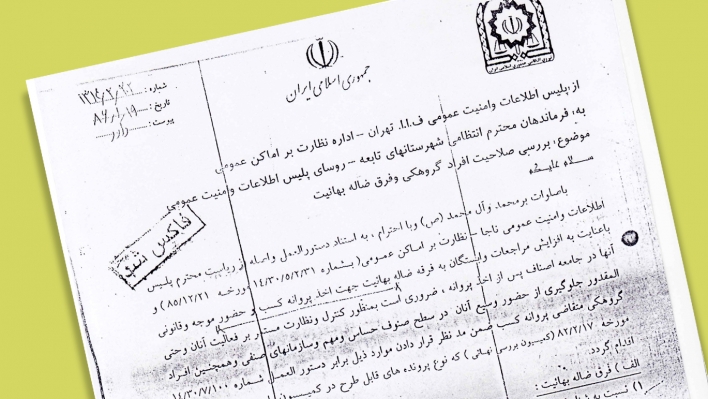 جمهوری اسلامی ایران
شماره:
تاریخ: ۸۶/۱/۱۹
پیوست: دارد
از: پلیس اطلاعات وامنیت عمومی ف.ا.ا. تهران – اداره نظارت بر اماکن عمومی
به: فرماندهان محترم انتظامی شهرستانهای تابعه – روسای پلیس اطلاعات وامنیت عمومی
موضوع: بررسی صلاحیت افراد گروهکی وفرق ضاله بهائیت
سلام علیکم
فاکس شد
باصلوات برمحمد وآل محمد (ص) وبا احترام ، به استناد دستورالعمل واصله از ریاست محترم پلیس
اطلاعات وامنیت عمومی ناجا – نظارت بر اماکن عمومی( بشماره ۱۴/۳۰/۵/۲/۳۱ مورخه ۸۵/۱۲/۲۱ ) و
باعنایت به افزایش مراجعات وابستگان به فرقه ضاله بهائیت جهت اخذ پروانه کسب و حضور موجه وقانونی
آنها در جامعه اصناف پس از اخذ پروانه ، ضروری است بمنظور کنترل ونظارت مستمر بر فعالیت آنان وحتی
المقدور جلوگیری از حضور وسیع آنان در سطح صنوف حساس ومهم وسازمانهای صنفی وهمچنین افراد
گروهکی متقاضی پروانه کسب ضمن مد نظر قرار دادن موارد ذیل برابر دستور العمل شماره ۱۴/۳۰/۷/۱۰۰
مورخه ۸۲/۲/۱۷ (کمیسیون بررسی نهائی ) که نوع پرونده های قابل طرح در کمیسیون
اقدام گردد.
الف ) فرق ضاله بهائیت :
۱) نسبت به